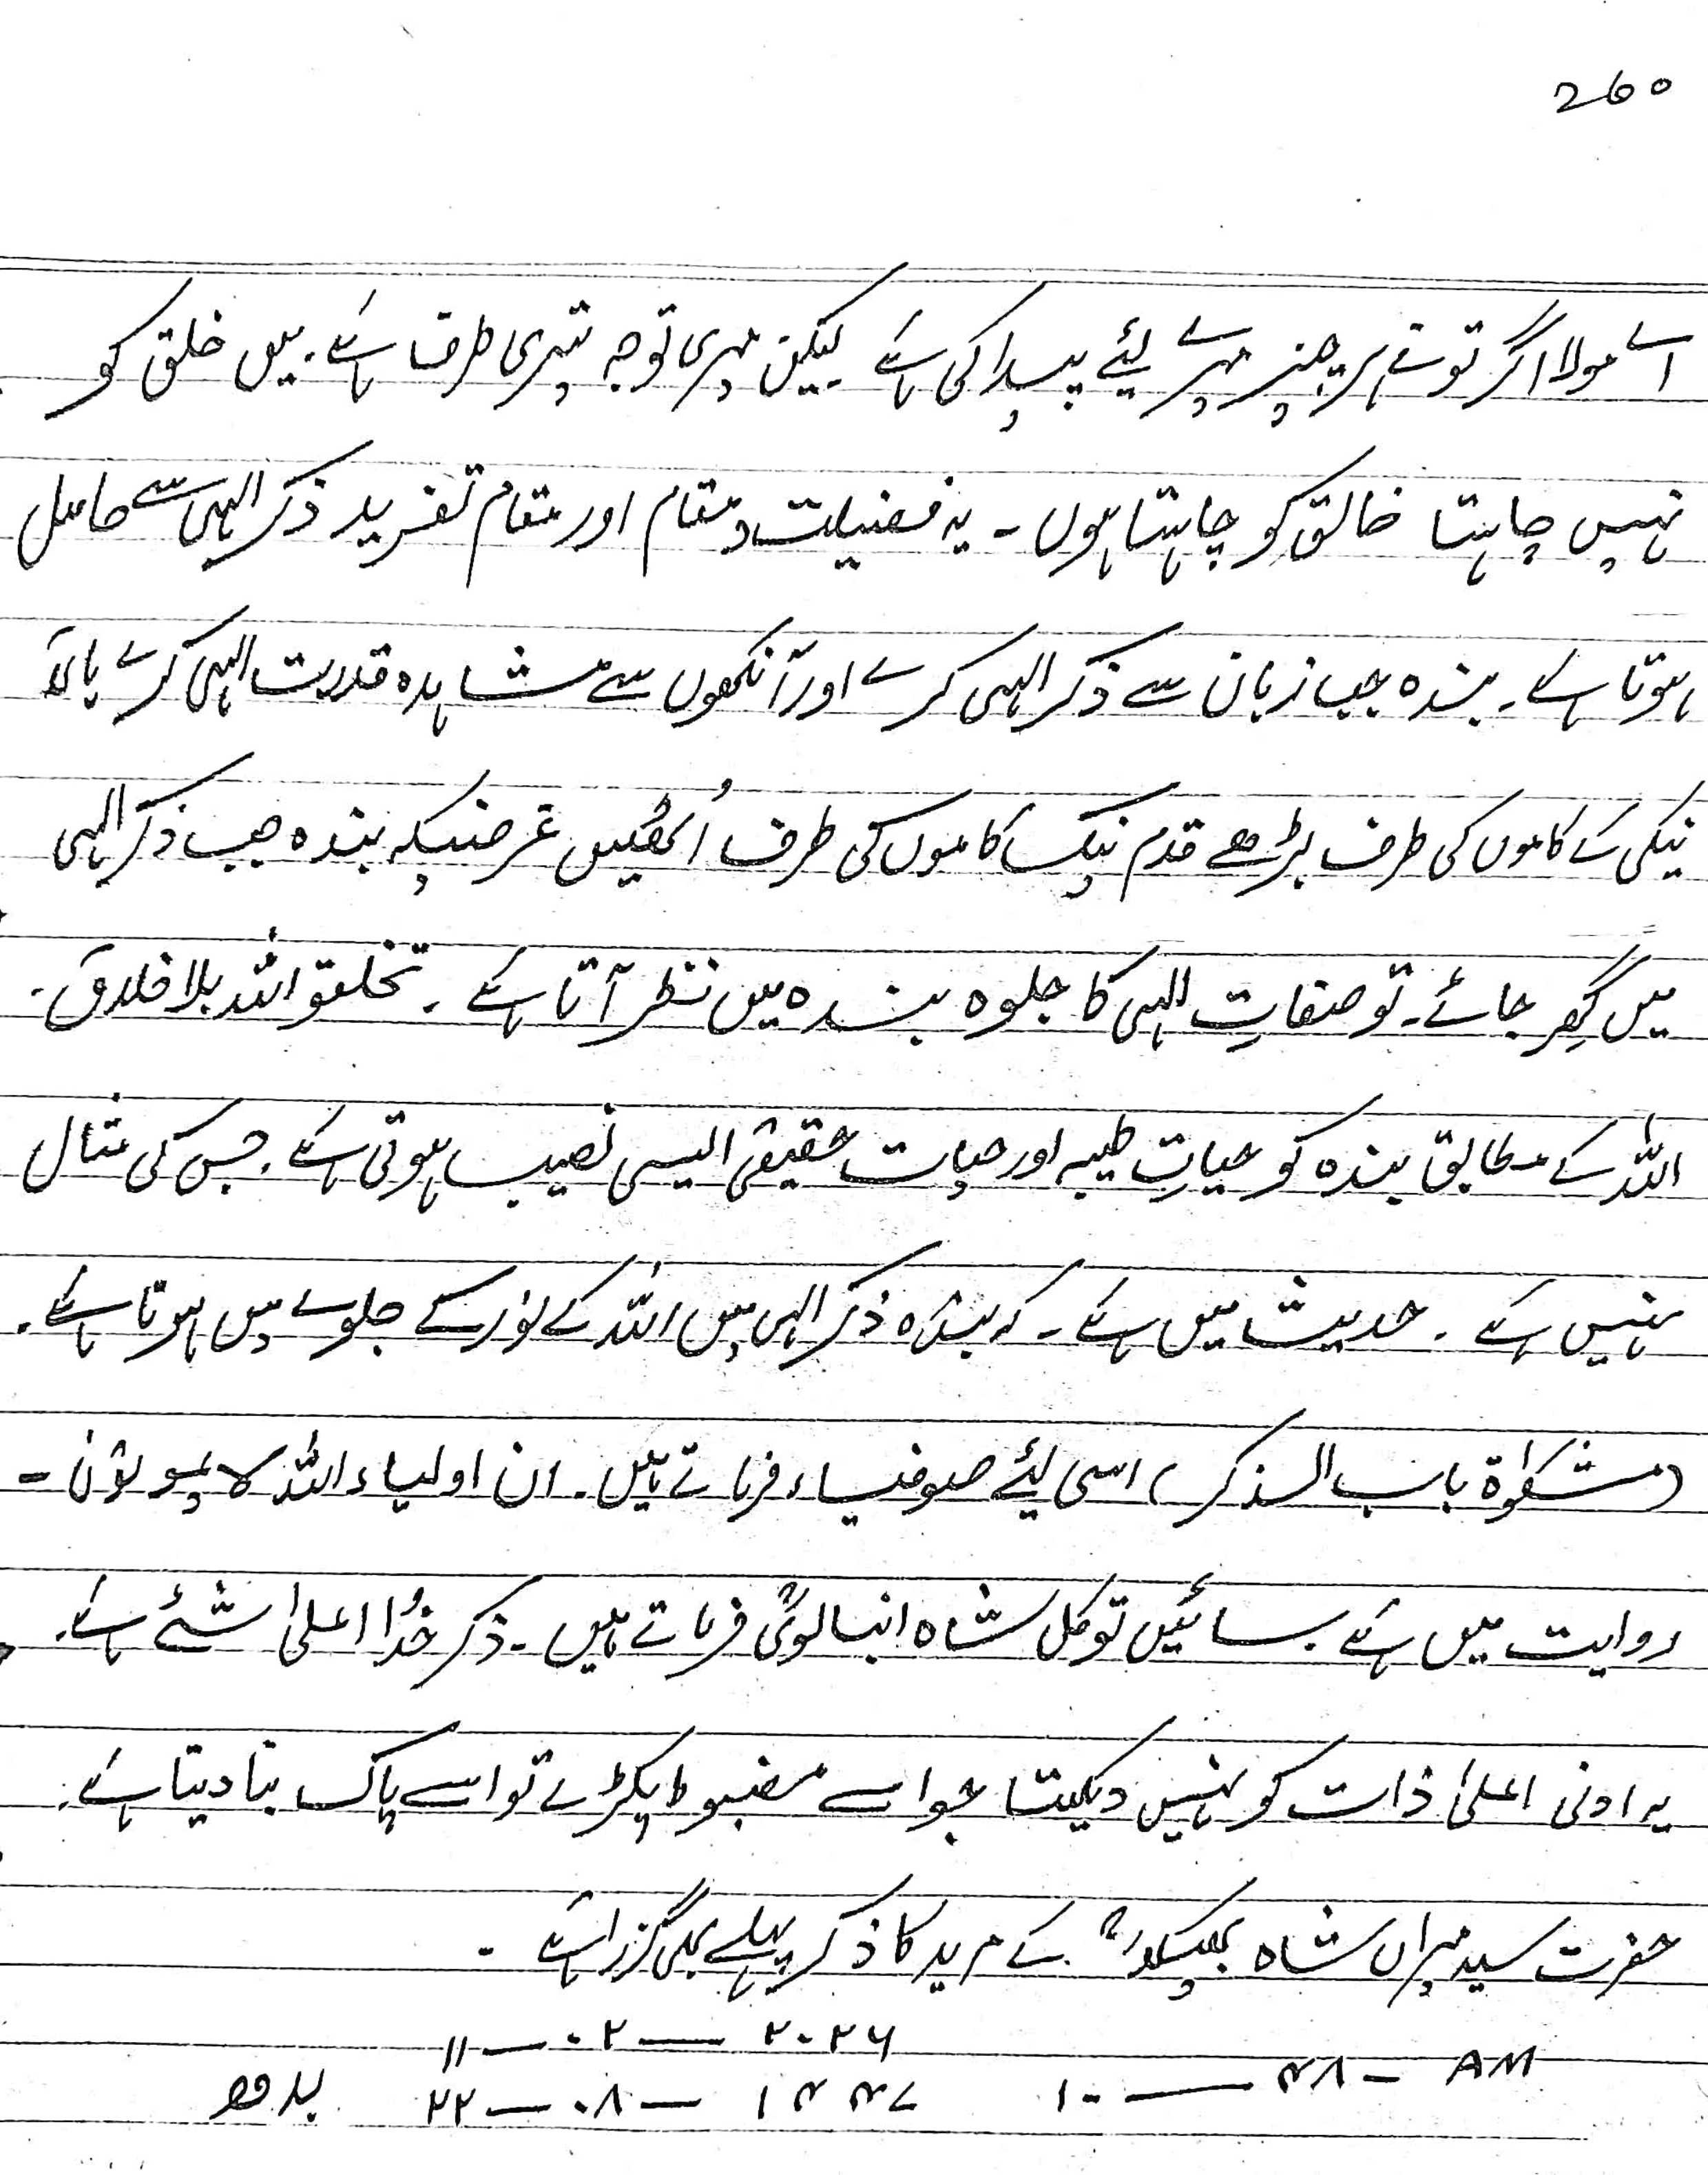 260
اے مولا اگر تونے ہر چیز میرے لئے پیدا کی ہے لیکن میری توجہ تیری طرف ہے۔ میں خلق کو
نہیں چاہتا خالق کو چاہتا ہوں ۔ یہ فضیلت و مقام اور مقام تفرید ذکر الہی سے حاصل
ہوتا ہے۔ بندہ جب زبان سے ذکر الہی کرے اور آنکھوں سے مشاہدہ قدرت الہی کرے ہاتھ
نیکی کے کاموں کی طرف بڑھے قدم نیک کاموں کی طرف اُٹھیں غرضیکہ بندہ جب ذکر الہی
میں گِھر جائے۔ تو صفاتِ الہی کا جلوہ بندہ میں نظر آتا ہے ۔ تخلقو اللہ بلا خلاق ۔
اللہ کے مطابق بندہ کو حیاتِ طیبہ اور حیات حقیقی ایسی نصیب ہوتی ہے۔ جس کی مثال
نہیں ہے ۔ حدیث میں ہے ۔ کہ بندہ ذکر الہی میں اللہ کے نور کے جلوے میں ہوتا ہے ۔
(مشکوٰۃ باب الذکر) اسی لئے صوفیاء فرماتے ہیں۔ ان اولیاء اللہ لا یموتون ۔
روایت میں ہے۔ سائیں توکل شاہ انبالویؒ فرماتے ہیں ۔ ذکر خُدا اعلیٰ شئے ہے۔
یہ ادنی اعلیٰ ذات کو نہیں دیکھتا جو اسے مضبوط پکڑے تو اسے پاک بنا دیتا ہے۔
حضرت سید میراں شاہ بھیکھؒ کے مرید کا ذکر پہلے بھی گزرا ہے ۔
۱۱ — ۰۲ — ۲۰۲۶
۱۰ — ۴۸ — AM
۲۲ — ۰۸ — ۱۴۴۷ بدھ